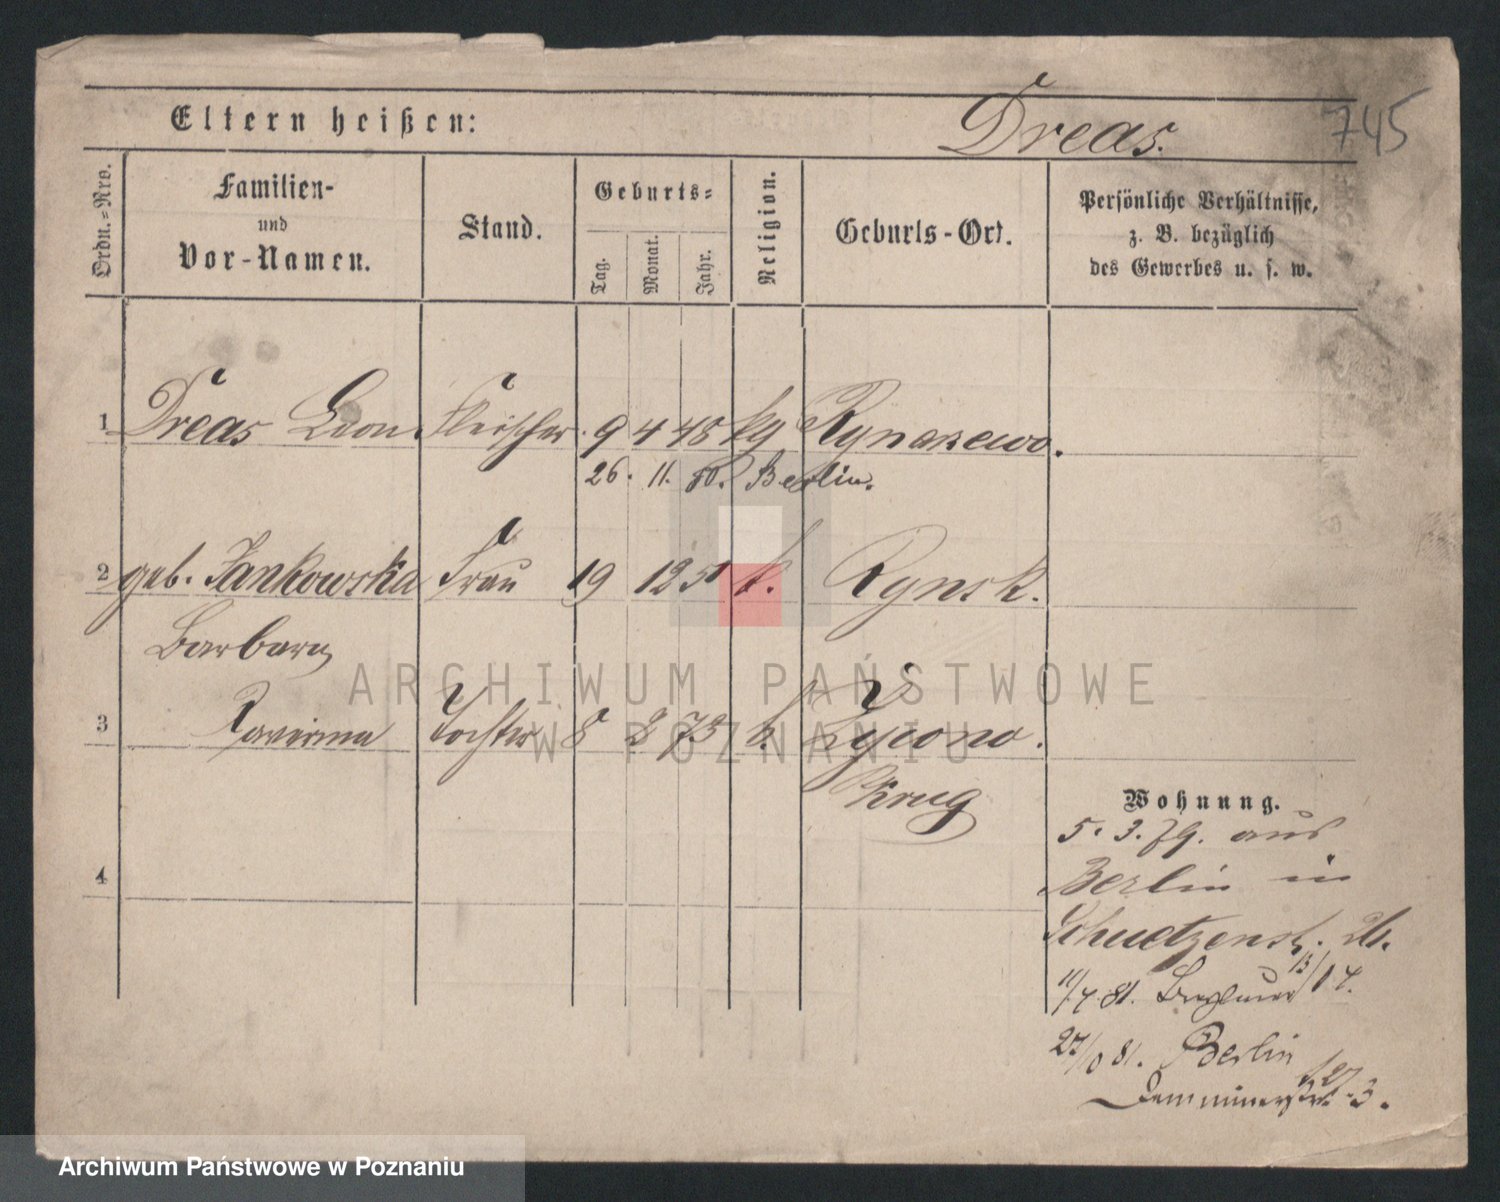 Eltern heißen: Dreas. 745
Ordn.-Nro.
Familien-
und
Vor-Namen.
Stand.
Geburts-
Tag.
Monat.
Jahr.
Religion.
Geburts-Ort.
Persönliche Verhältnisse,
z. B. bezüglich
des Gewerbes u. s. w.
1 Dreas Leon Fleischer 9 4 48 kg Rynarzewo.
26. 11. 80. Berlin.
2 geb. Jankowska Frau 19 12 51 k. Rynsk.
Barbara
3 Tochter 8 2 73 k.
Krug
4
Wohnung.
5. 3. 79. aus
Berlin in
Schuetzenst. 26.
11/4 81. 13/14.
27/10 81. Berlin
Demminerstr. 3.
ARCHIWUM PAŃSTWOWE
W POZNANIU
Archiwum Państwowe w Poznaniu